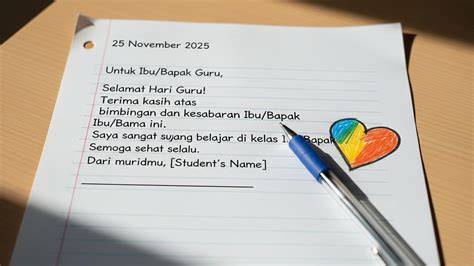 25 November 2025
Untuk Ibu/Bapak Guru,
Selamat Hari Guru!
Terima kasih atas
bimbingan dan kesabaran Ibu/Bapak
Ibu/Bama ini.
Saya sangat sujang belajar di kelas Ibu/Bapak
Semoga sehat selalu.
Dari muridmu, [Student's Name]